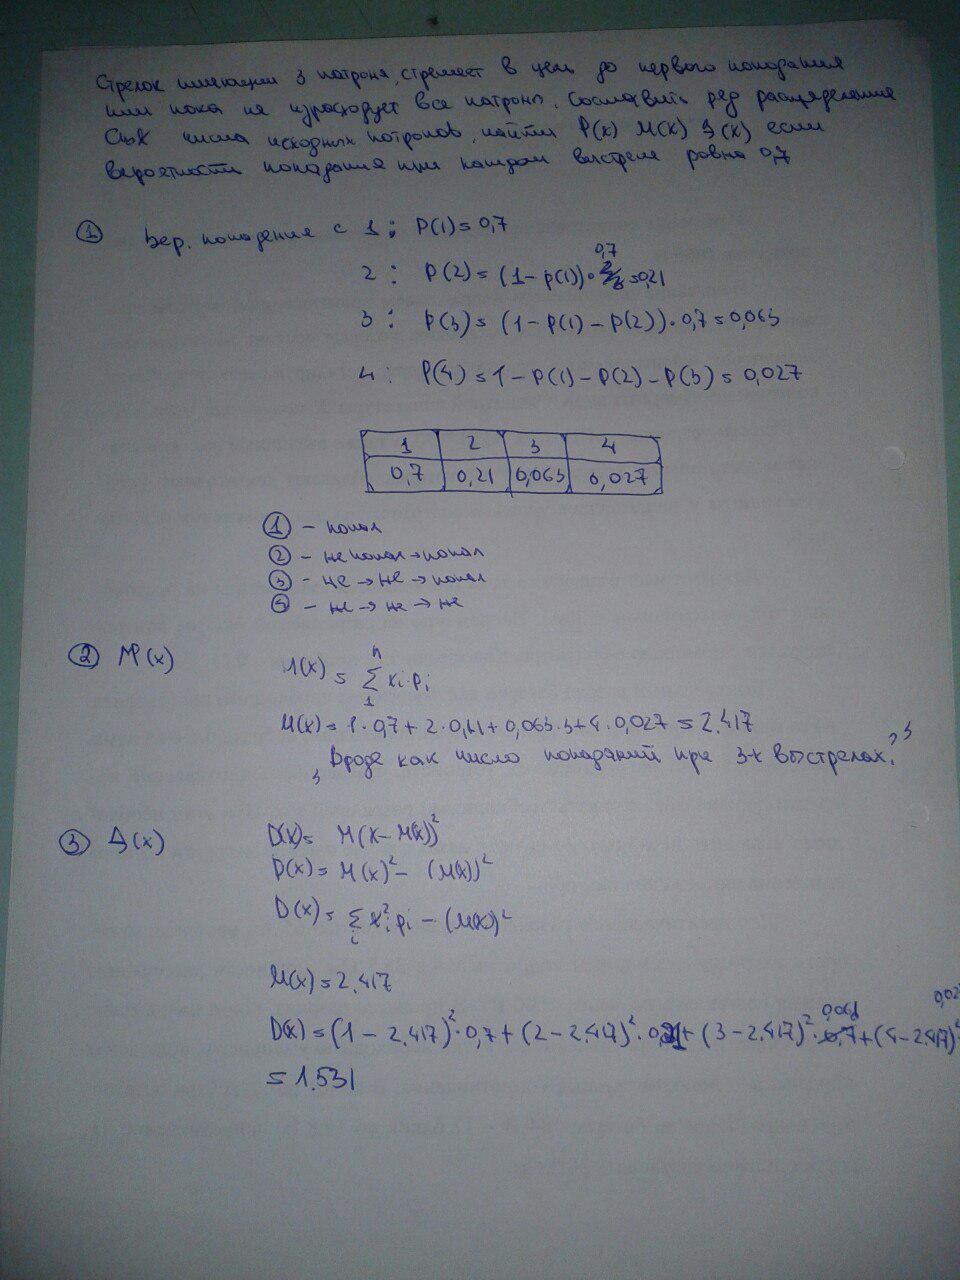 Стрелок имеющий 3 патрона, стреляет в цель до первого попадания
или пока не израсходует все патроны. Составить ряд распределения
СВХ числа исходных патронов, найти P(x) M(x) D(x) если
вероятности попадания при каждом выстреле равна 0,7
① Вер. попадение с 1: P(1) = 0,7
0,7
2: P(2) = (1 - p(1)) · = 0,21
3: P(3) = (1 - P(1) - P(2)) · 0,7 = 0,063
4: P(4) = 1 - P(1) - P(2) - P(3) = 0,027
1 2 3 4
0,7 0,21 0,063 0,027
① - попал
② - не попал → попал
③ - не → не → попал
④ - не → не → не
② M(x) M(x) = n ∑ 1 xi · pi
M(x) = 1 · 0,7 + 2 · 0,21 + 0,063 · 3 + 4 · 0,027 = 2.417
Вроде как число попаданий при 3-х выстрелах?
③ D(x) D(x) = M(x - M(x))²
D(x) = M(x)² - (M(x))²
D(x) = ∑ i xi² pi - (M(x))²
M(x) = 2.417
D(x) = (1 - 2.417)² · 0,7 + (2 - 2.417)² · 0,21 + (3 - 2.417)² · 0,7 + (4 - 2.417)²
= 1.531